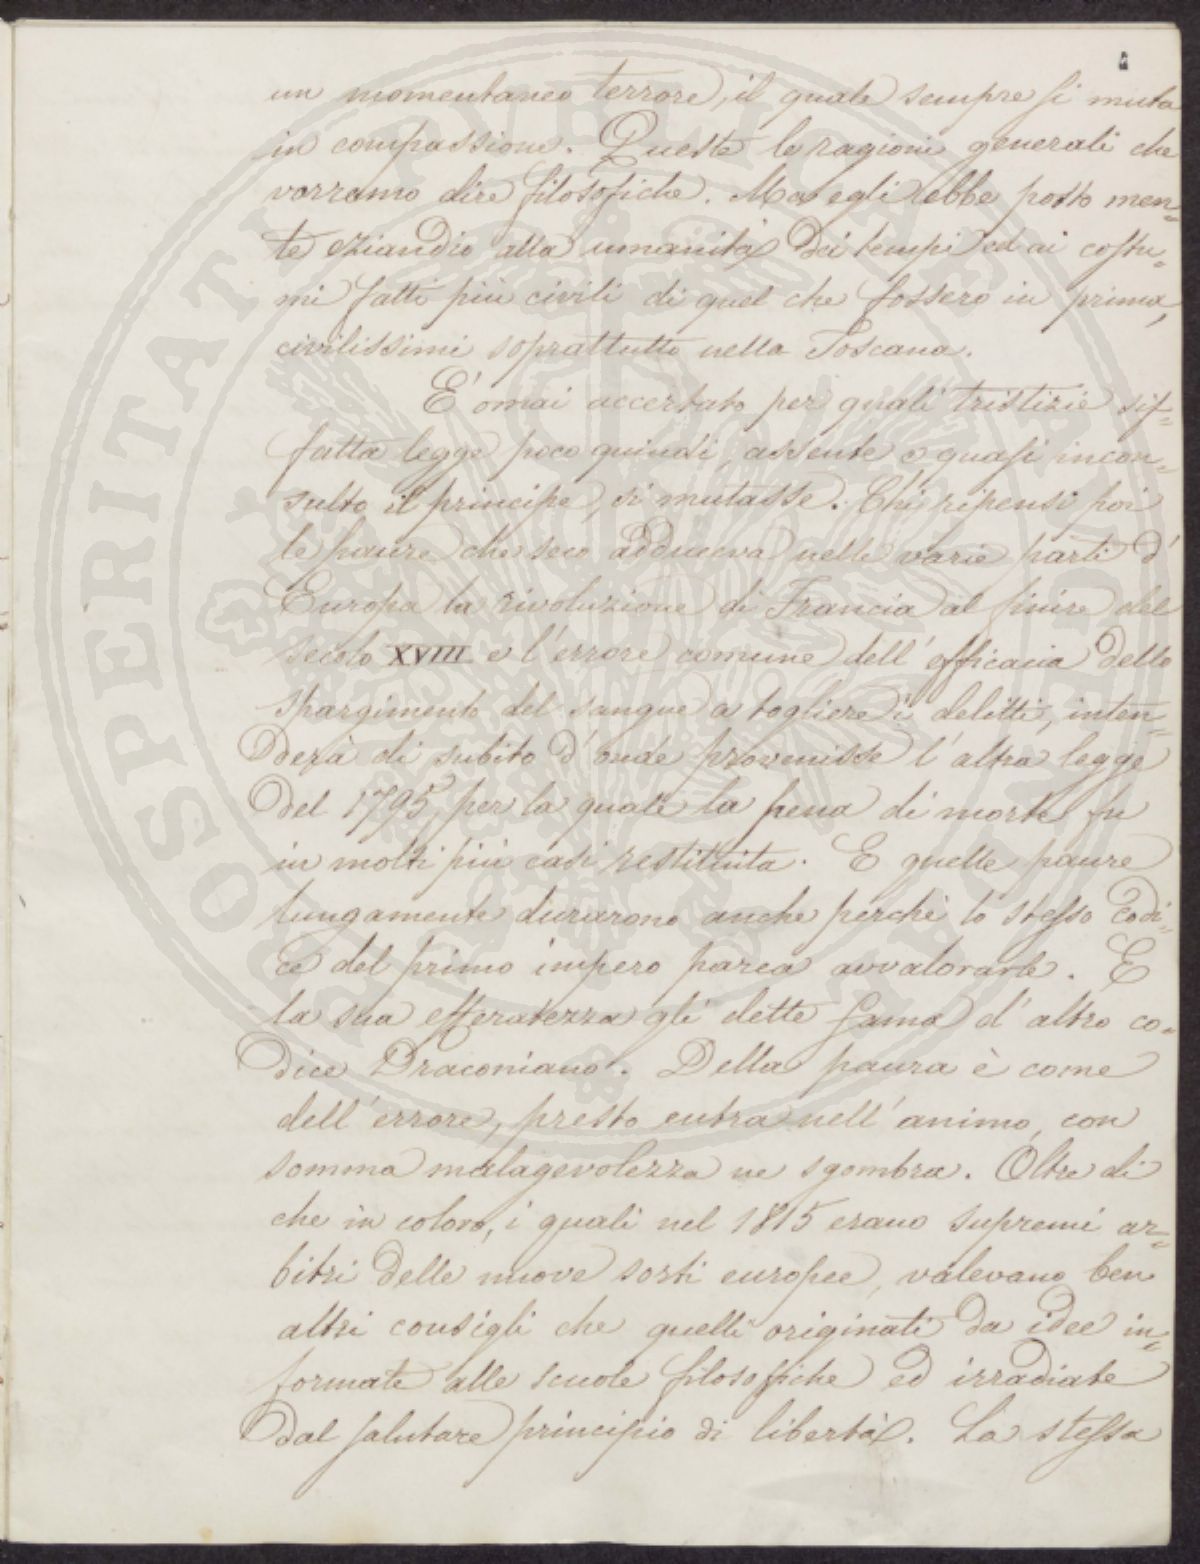 un momentaneo terrore, il quale sempre si muta
in compassione. Queste le ragioni generali che
vorramo dire filosofiche. Ma egli ebbe posto men=
te eziandio alla umanità dei tempi ed ai costu=
mi fatti più civili di quel che fossero in prima,
civilissimi soprattutto nella Toscana.
E' omai accertato per quali tristizie sif=
fatta legge poco quindi, assente o quasi incon=
sulto il principe, si mutasse. Chi ripensi poi
le paure che seco adduceva nelle varie parti d'
Europa la rivoluzione di Francia al finire del
secolo XVIII e l'errore comune dell'efficacia dello
spargimento del sangue a togliere i delitti, inten=
derà di subito d'onde provenisse l'altra legge
del 1795, per la quale la pena di morte fu
in molti più casi restituita. E quelle paure
lungamente durarono anche perchè lo stesso Codi=
ce del primo impero parea avvalorarle. E
la sua efferatezza gli dette fama d'altro co=
dice Draconiano. Della paura è come
dell'errore, presto entra nell'animo, con
somma malagevolezza ne sgombra. Oltre di
che in coloro, i quali nel 1815 erano supremi ar=
bitri delle nuove sorti europee, valevano ben
altri consigli che quelli originati da idee in=
formate alle scuole filosofiche ed irradiate
dal salutare principio di libertà. La stessa
PROSPERITATI PVBLICAE AVGENDAE